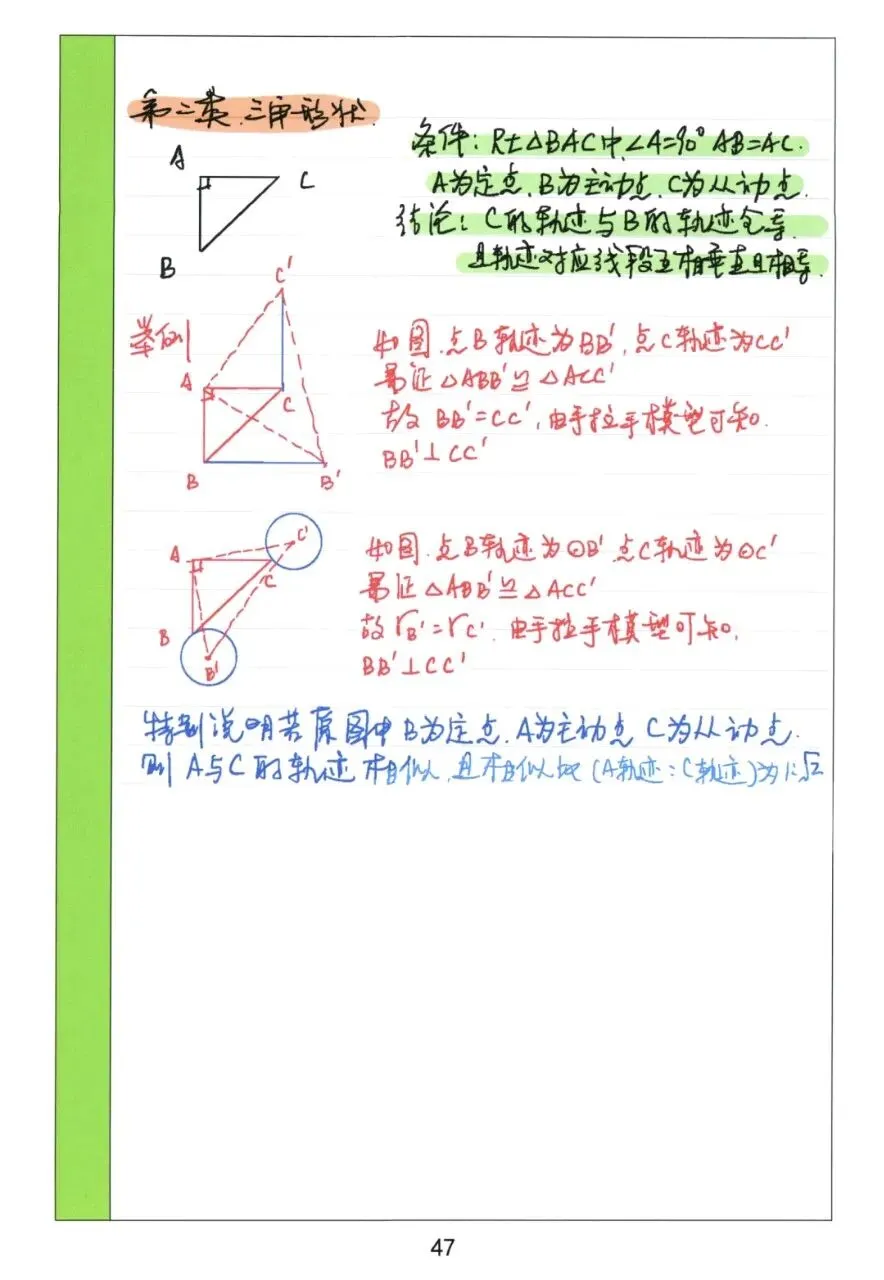 第二类.三角形状.
条件:Rt△BAC中,∠A=90° AB=AC.
A为定点.B为主动点.C为从动点.
结论:C的轨迹与B的轨迹全等.
且轨迹对应线段互相垂直且相等.
A
C
B
举例
C'
A
C
B
B'
如图.点B轨迹为BB',点C轨迹为CC'
易证△ABB'≌△ACC'
故BB'=CC',由手拉手模型可知.
BB'⊥CC'
A
C'
C
B
B'
如图.点B轨迹为⊙B'点C轨迹为⊙C'
易证△ABB'≌△ACC'
故r_B'=r_C'.由手拉手模型可知,
BB'⊥CC'
特别说明若原图中B为定点.A为主动点C为从动点.
则A与C的轨迹相似,且相似比(A轨迹:C轨迹)为1:√2
47